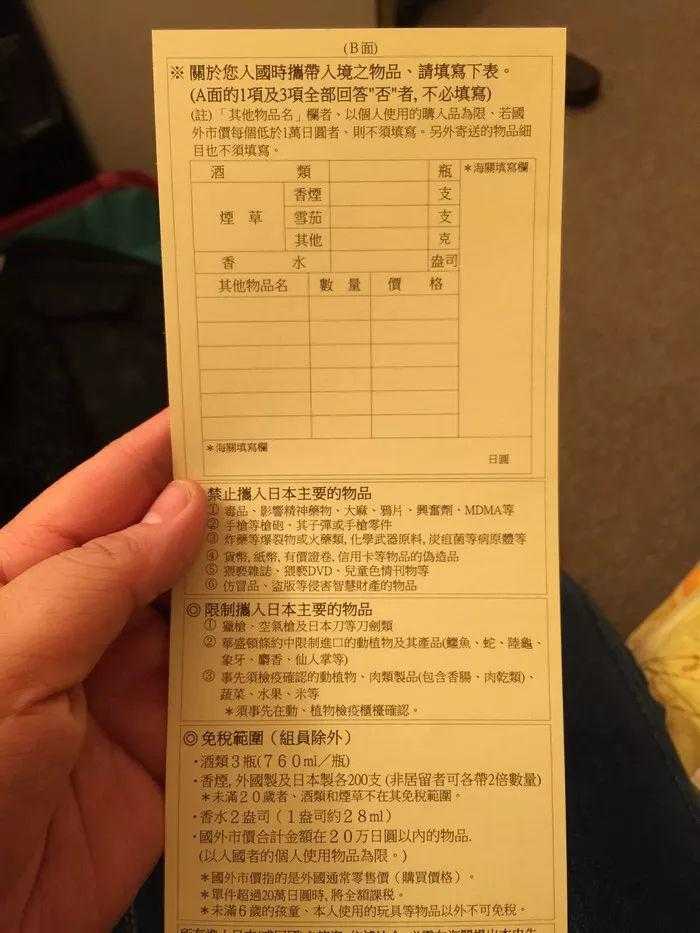 (B面)
※ 關於您入國時攜帶入境之物品、請填寫下表。
(A面的1項及3項全部回答"否"者, 不必填寫)
(註)「其他物品名」欄者、以個人使用的購入品為限、若國
外市價每個低於1萬日圓者、則不須填寫。另外寄送的物品細
目也不須填寫。
酒 類 瓶 *海關填寫欄
煙 草 香煙 支
雪茄 支
其他 克
香 水 盎司
其他物品名 數 量 價 格
*海關填寫欄
日圓
禁止攜入日本主要的物品
① 毒品、影響精神藥物、大麻、鴉片、興奮劑、MDMA等
② 手槍等槍砲、其子彈或手槍零件
③ 炸藥等爆裂物或火藥類, 化學武器原料, 炭疽菌等病原體等
④ 貨幣, 紙幣, 有價證卷, 信用卡等物品的偽造品
⑤ 猥褻雜誌、猥褻DVD、兒童色情刊物等
⑥ 仿冒品、盜版等侵害智慧財產的物品
◎ 限制攜入日本主要的物品
① 獵槍、空氣槍及日本刀等刀劍類
② 華盛頓條約中限制進口的動植物及其產品(鱷魚、蛇、陸龜、
象牙、麝香、仙人掌等)
③ 事先須檢疫確認的動植物、肉類製品(包含香腸、肉乾類)、
蔬菜、水果、米等
*須事先在動、植物檢疫櫃檯確認。
◎ 免稅範圍（組員除外）
・酒類3瓶(760ml／瓶)
・香煙, 外國製及日本製各200支 (非居留者可各帶2倍數量)
*未滿20歲者、酒類和煙草不在其免稅範圍。
・香水2盎司（1盎司約28ml）
・國外市價合計金額在20万日圓以內的物品.
(以入國者的個人使用物品為限。)
*國外市價指的是外國通常零售價（購買價格）。
*單件超過20萬日圓時, 將全額課稅。
*未滿6歲的孩童、本人使用的玩具等物品以外不可免稅。